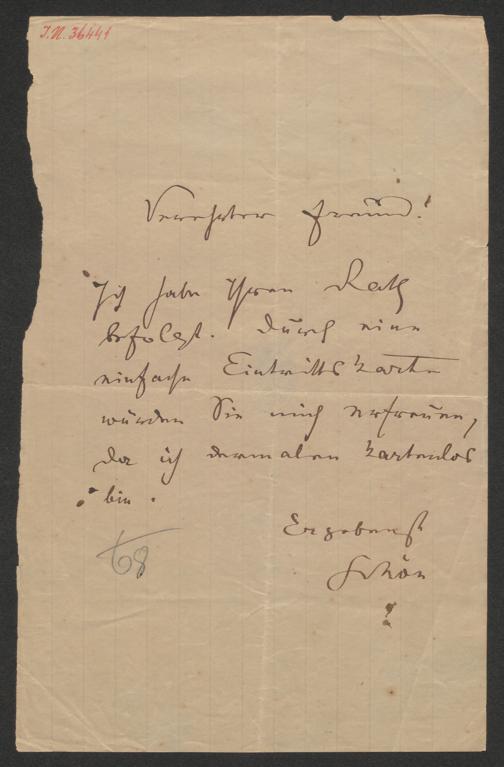 I.N. 36441
Verehrter Freund!
Ich habe Ihren Rath
befolgt. Durch eine
einfache Eintrittskarte
würden Sie mich erfreuen,
da ich dermalen kartenlos
bin.
Ergebenst
Schön
68